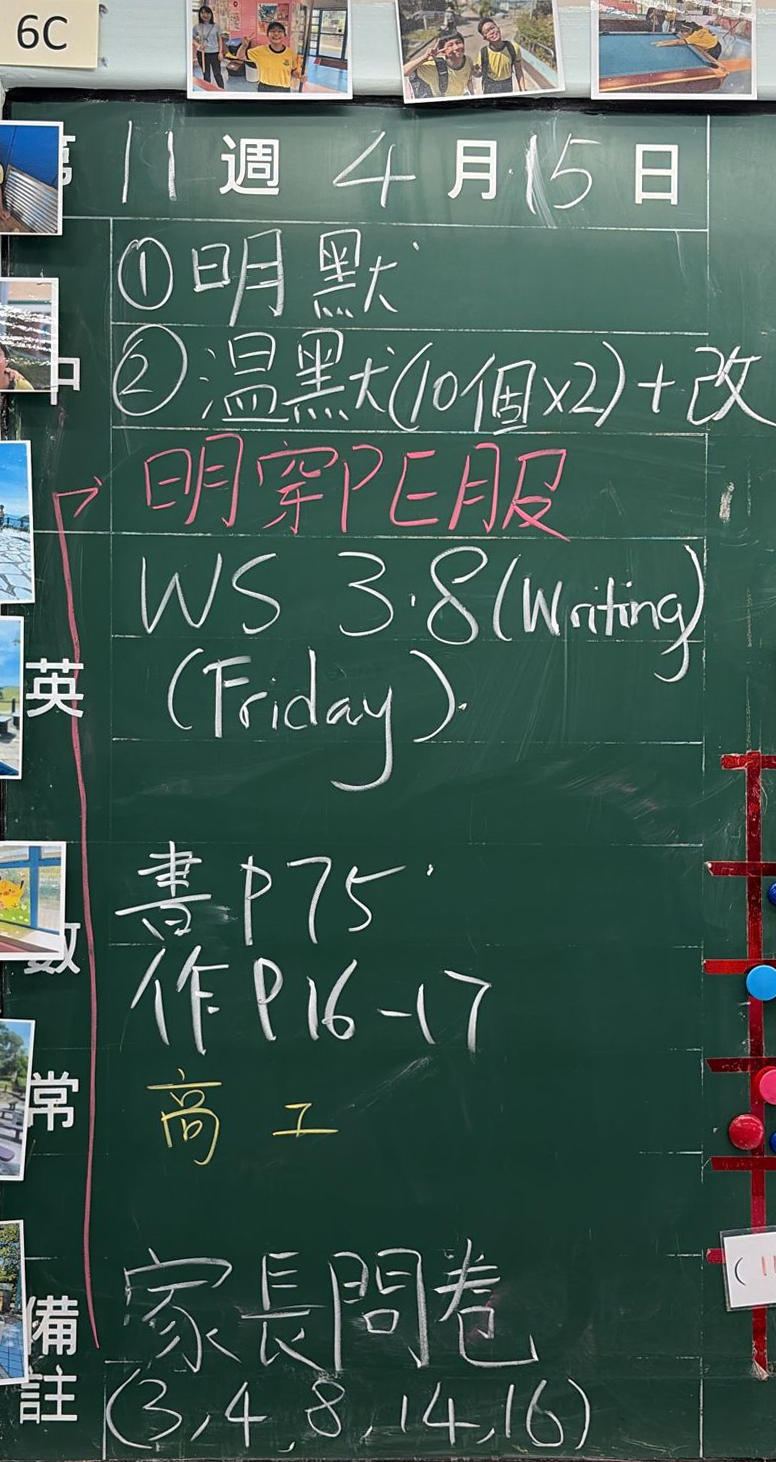 6C
第 11 週 4 月 15 日
中
① 明默
② 温默(10個x2)+改
明穿PE服
英
WS 3.8 (Writing)
(Friday).
數
書 P75
作 P16-17
常
高 工
備註
家長問卷
(3,4,8,14,16)